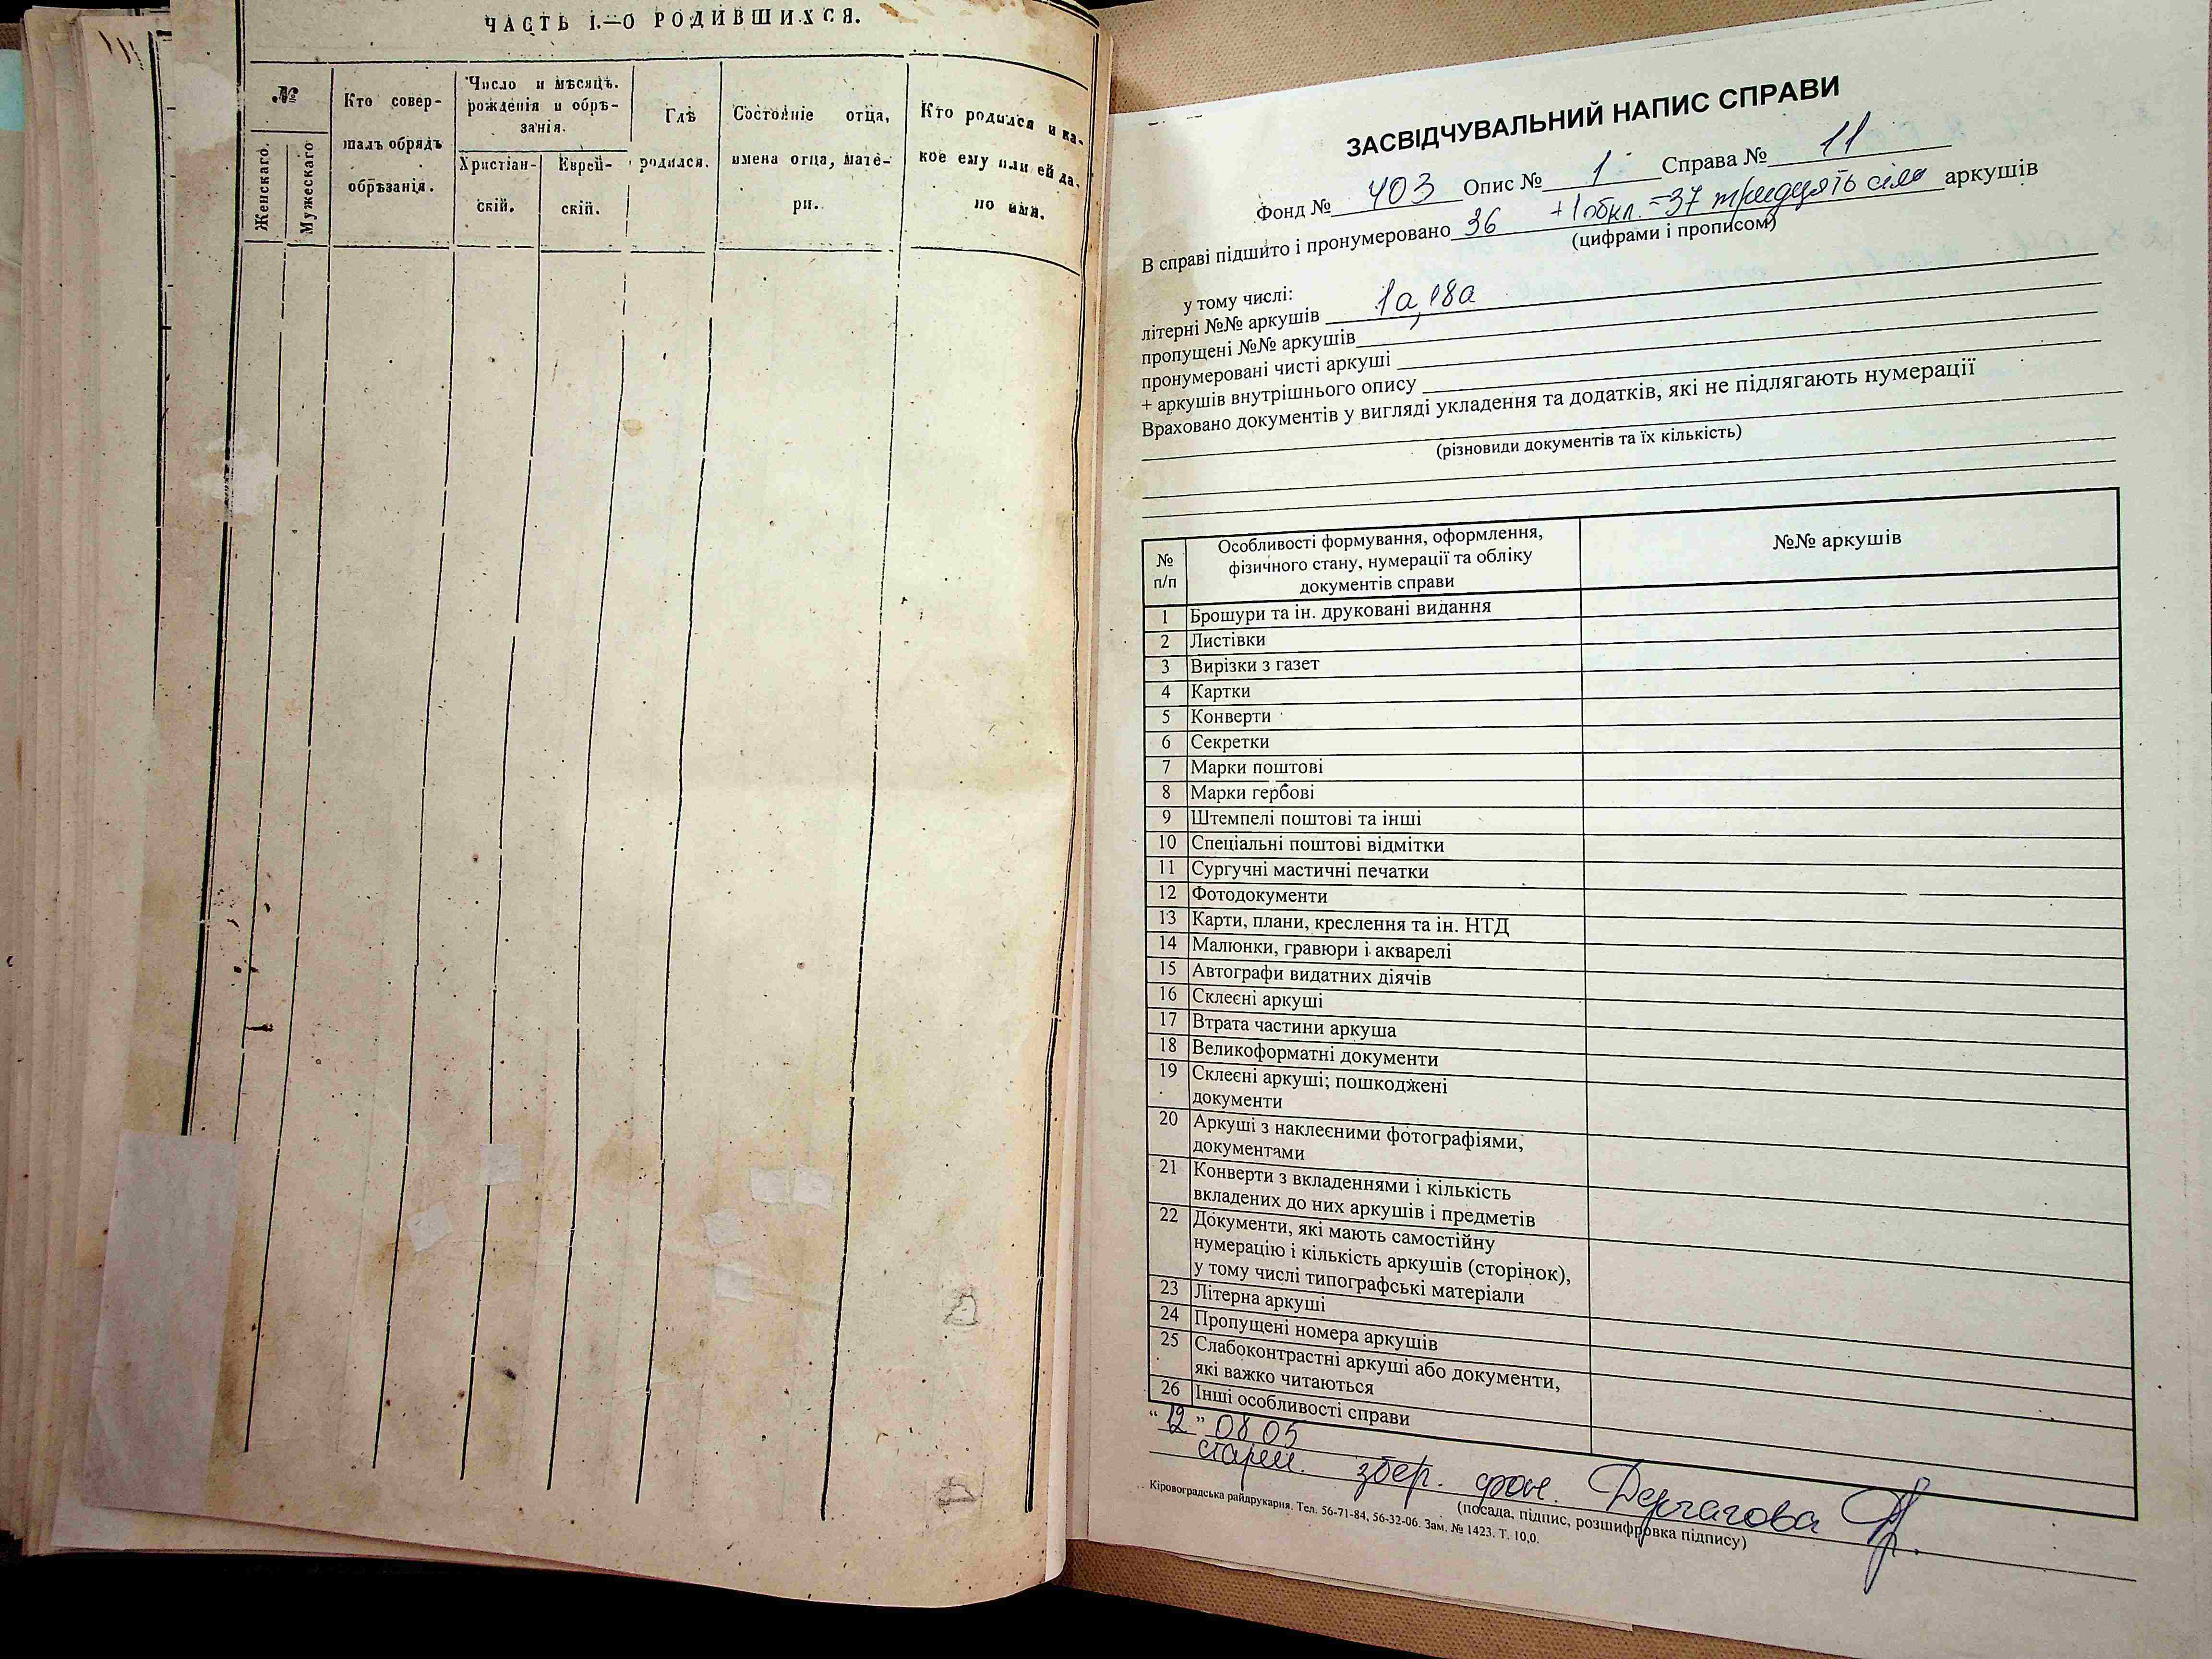 ЧАСТЬ I.—О РОДИВШИХСЯ.
№
Женскаго.
Мужескаго
Кто совер-
шалъ обрядъ
обрѣзанія.
Число и мѣсяцъ.
рожденія и обрѣ-
занія.
Христіан-
скій.
Еврей-
скій.
Гдѣ
родился.
Состояніе отца,
имена отца, мате-
ри.
Кто родился и ка-
кое ему или ей да-
но имя.
ЗАСВІДЧУВАЛЬНИЙ НАПИС СПРАВИ
Фонд № 403 Опис № 1 Справа № 11
В справі підшито і пронумеровано 36 +1 обкл.=37 тридцять сім аркушів
(цифрами і прописом)
у тому числі:
літерні №№ аркушів 1а, 18а
пропущені №№ аркушів
пронумеровані чисті аркуші
+ аркушів внутрішнього опису
Враховано документів у вигляді укладення та додатків, які не підлягають нумерації
(різновиди документів та їх кількість)
№ п/п
Особливості формування, оформлення,
фізичного стану, нумерації та обліку
документів справи
№№ аркушів
1 Брошури та ін. друковані видання
2 Листівки
3 Вирізки з газет
4 Картки
5 Конверти
6 Секретки
7 Марки поштові
8 Марки гербові
9 Штемпелі поштові та інші
10 Спеціальні поштові відмітки
11 Сургучні мастичні печатки
12 Фотодокументи
13 Карти, плани, креслення та ін. НТД
14 Малюнки, гравюри і акварелі
15 Автографи видатних діячів
16 Склеєні аркуші
17 Втрата частини аркуша
18 Великоформатні документи
19 Склеєні аркуші; пошкоджені
документи
20 Аркуші з наклеєними фотографіями,
документами
21 Конверти з вкладеннями і кількість
вкладених до них аркушів і предметів
22 Документи, які мають самостійну
нумерацію і кількість аркушів (сторінок),
у тому числі типографські матеріали
23 Літерна аркуші
24 Пропущені номера аркушів
25 Слабоконтрастні аркуші або документи,
які важко читаються
26 Інші особливості справи
"12" 08 05
старш. збер. фон.
(посада, підпис, розшифровка підпису)
Кіровоградська райдрукарня. Тел. 56-71-84, 56-32-06. Зам. № 1423. Т. 10,0.